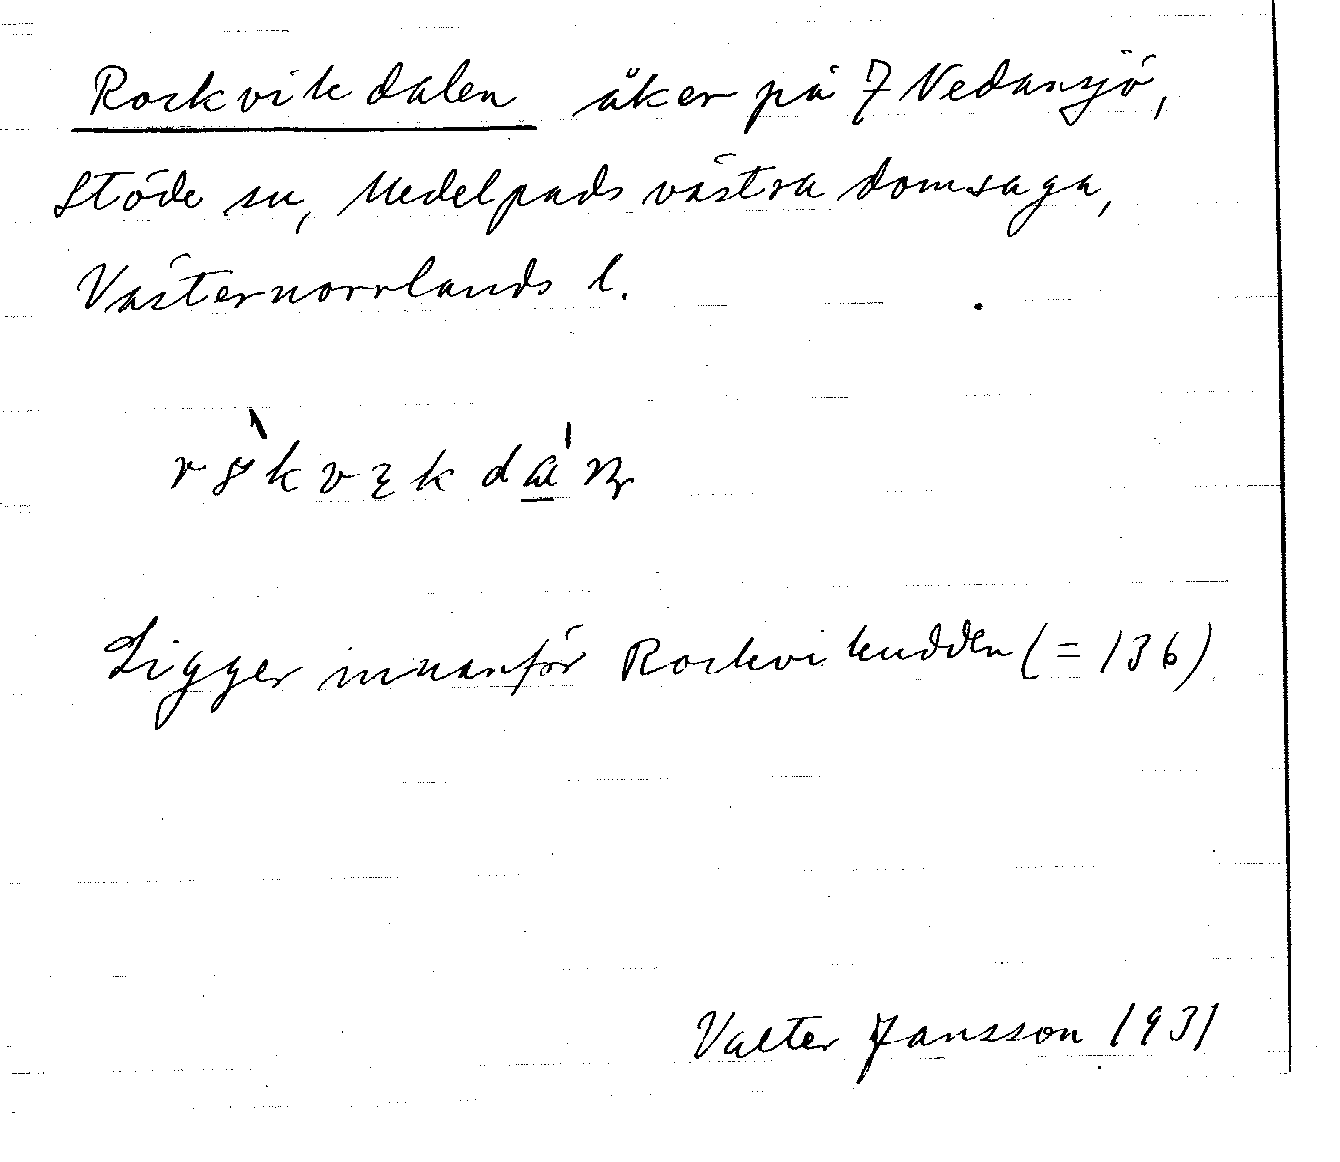 Rockvikdalen åker på 7 Nedansjö,
Stöde sn, Medelpads västra domsaga,
Västernorrlands l.
Ligger innanför Rockvikudden (= 136)
Valter Jansson 1931